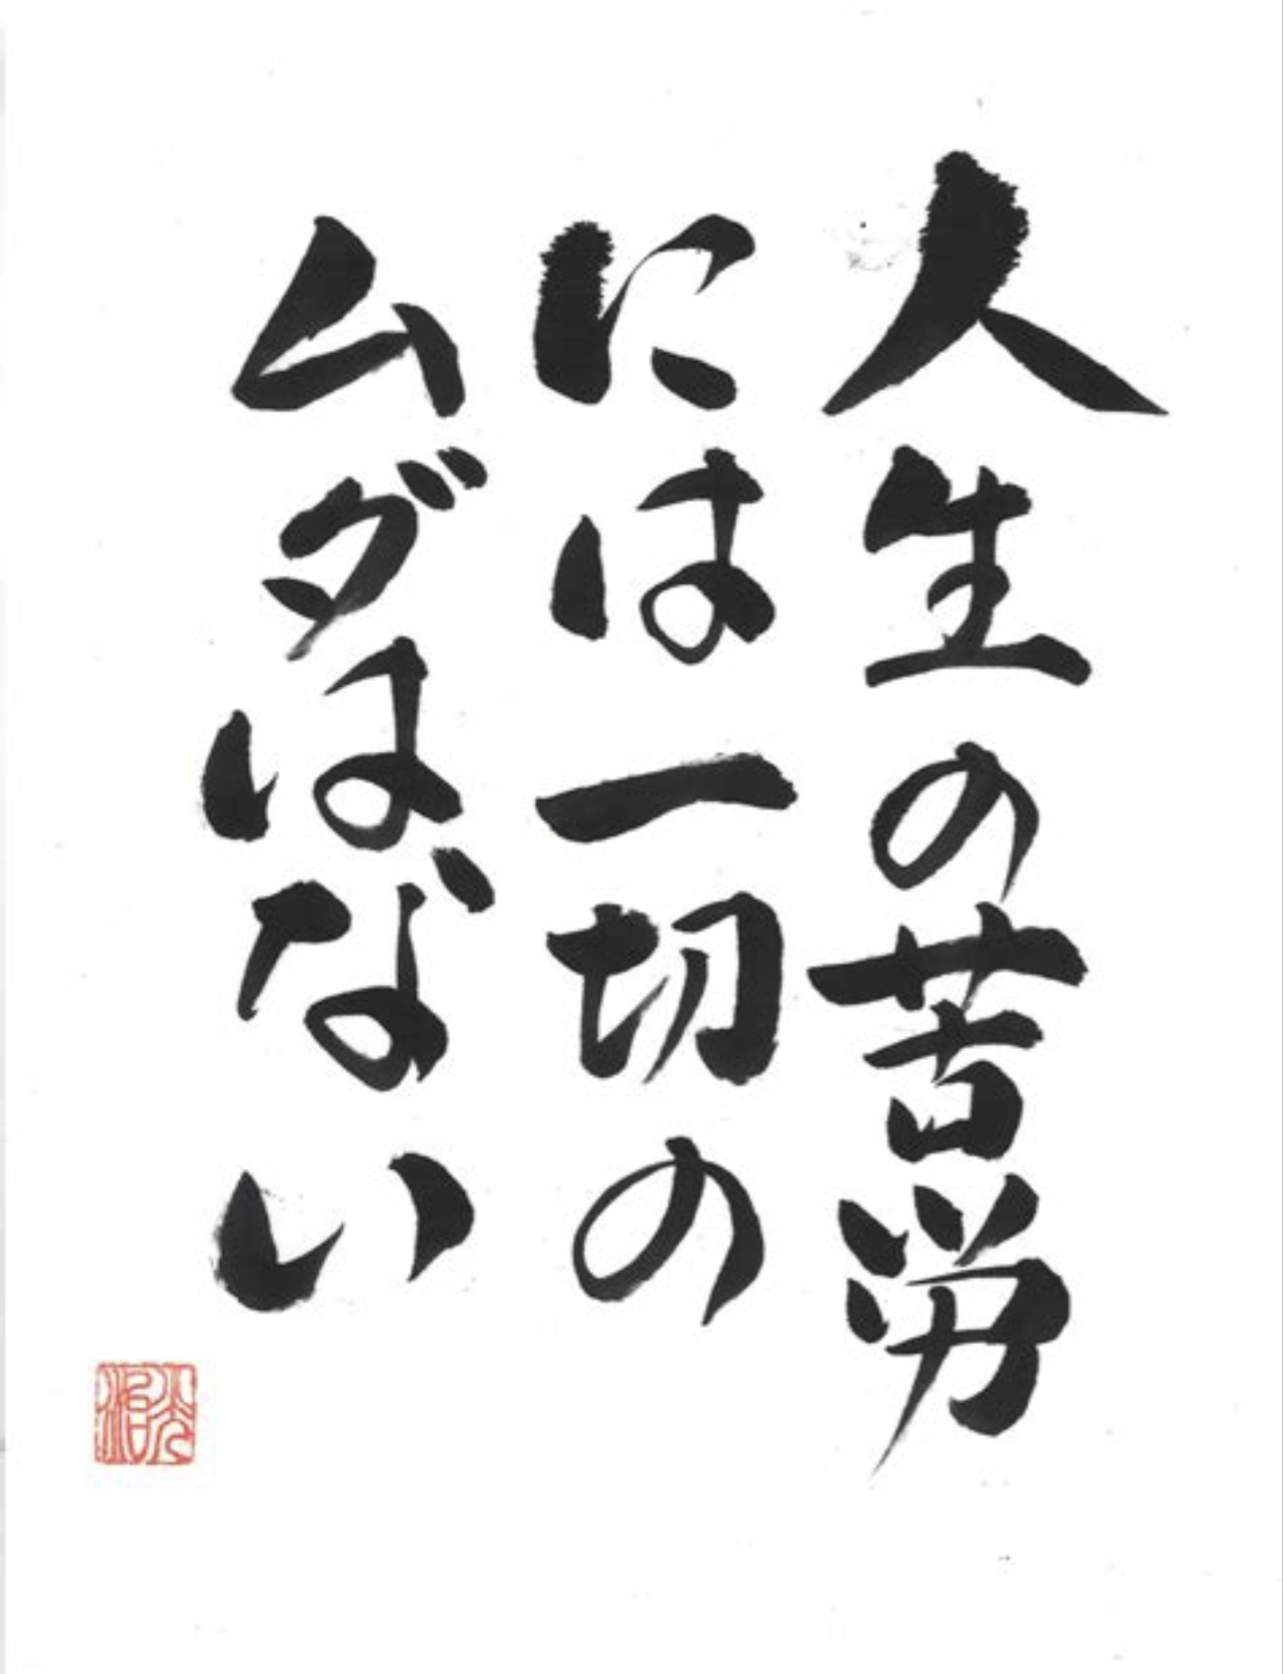 人生の苦労
には一切の
ムダはない